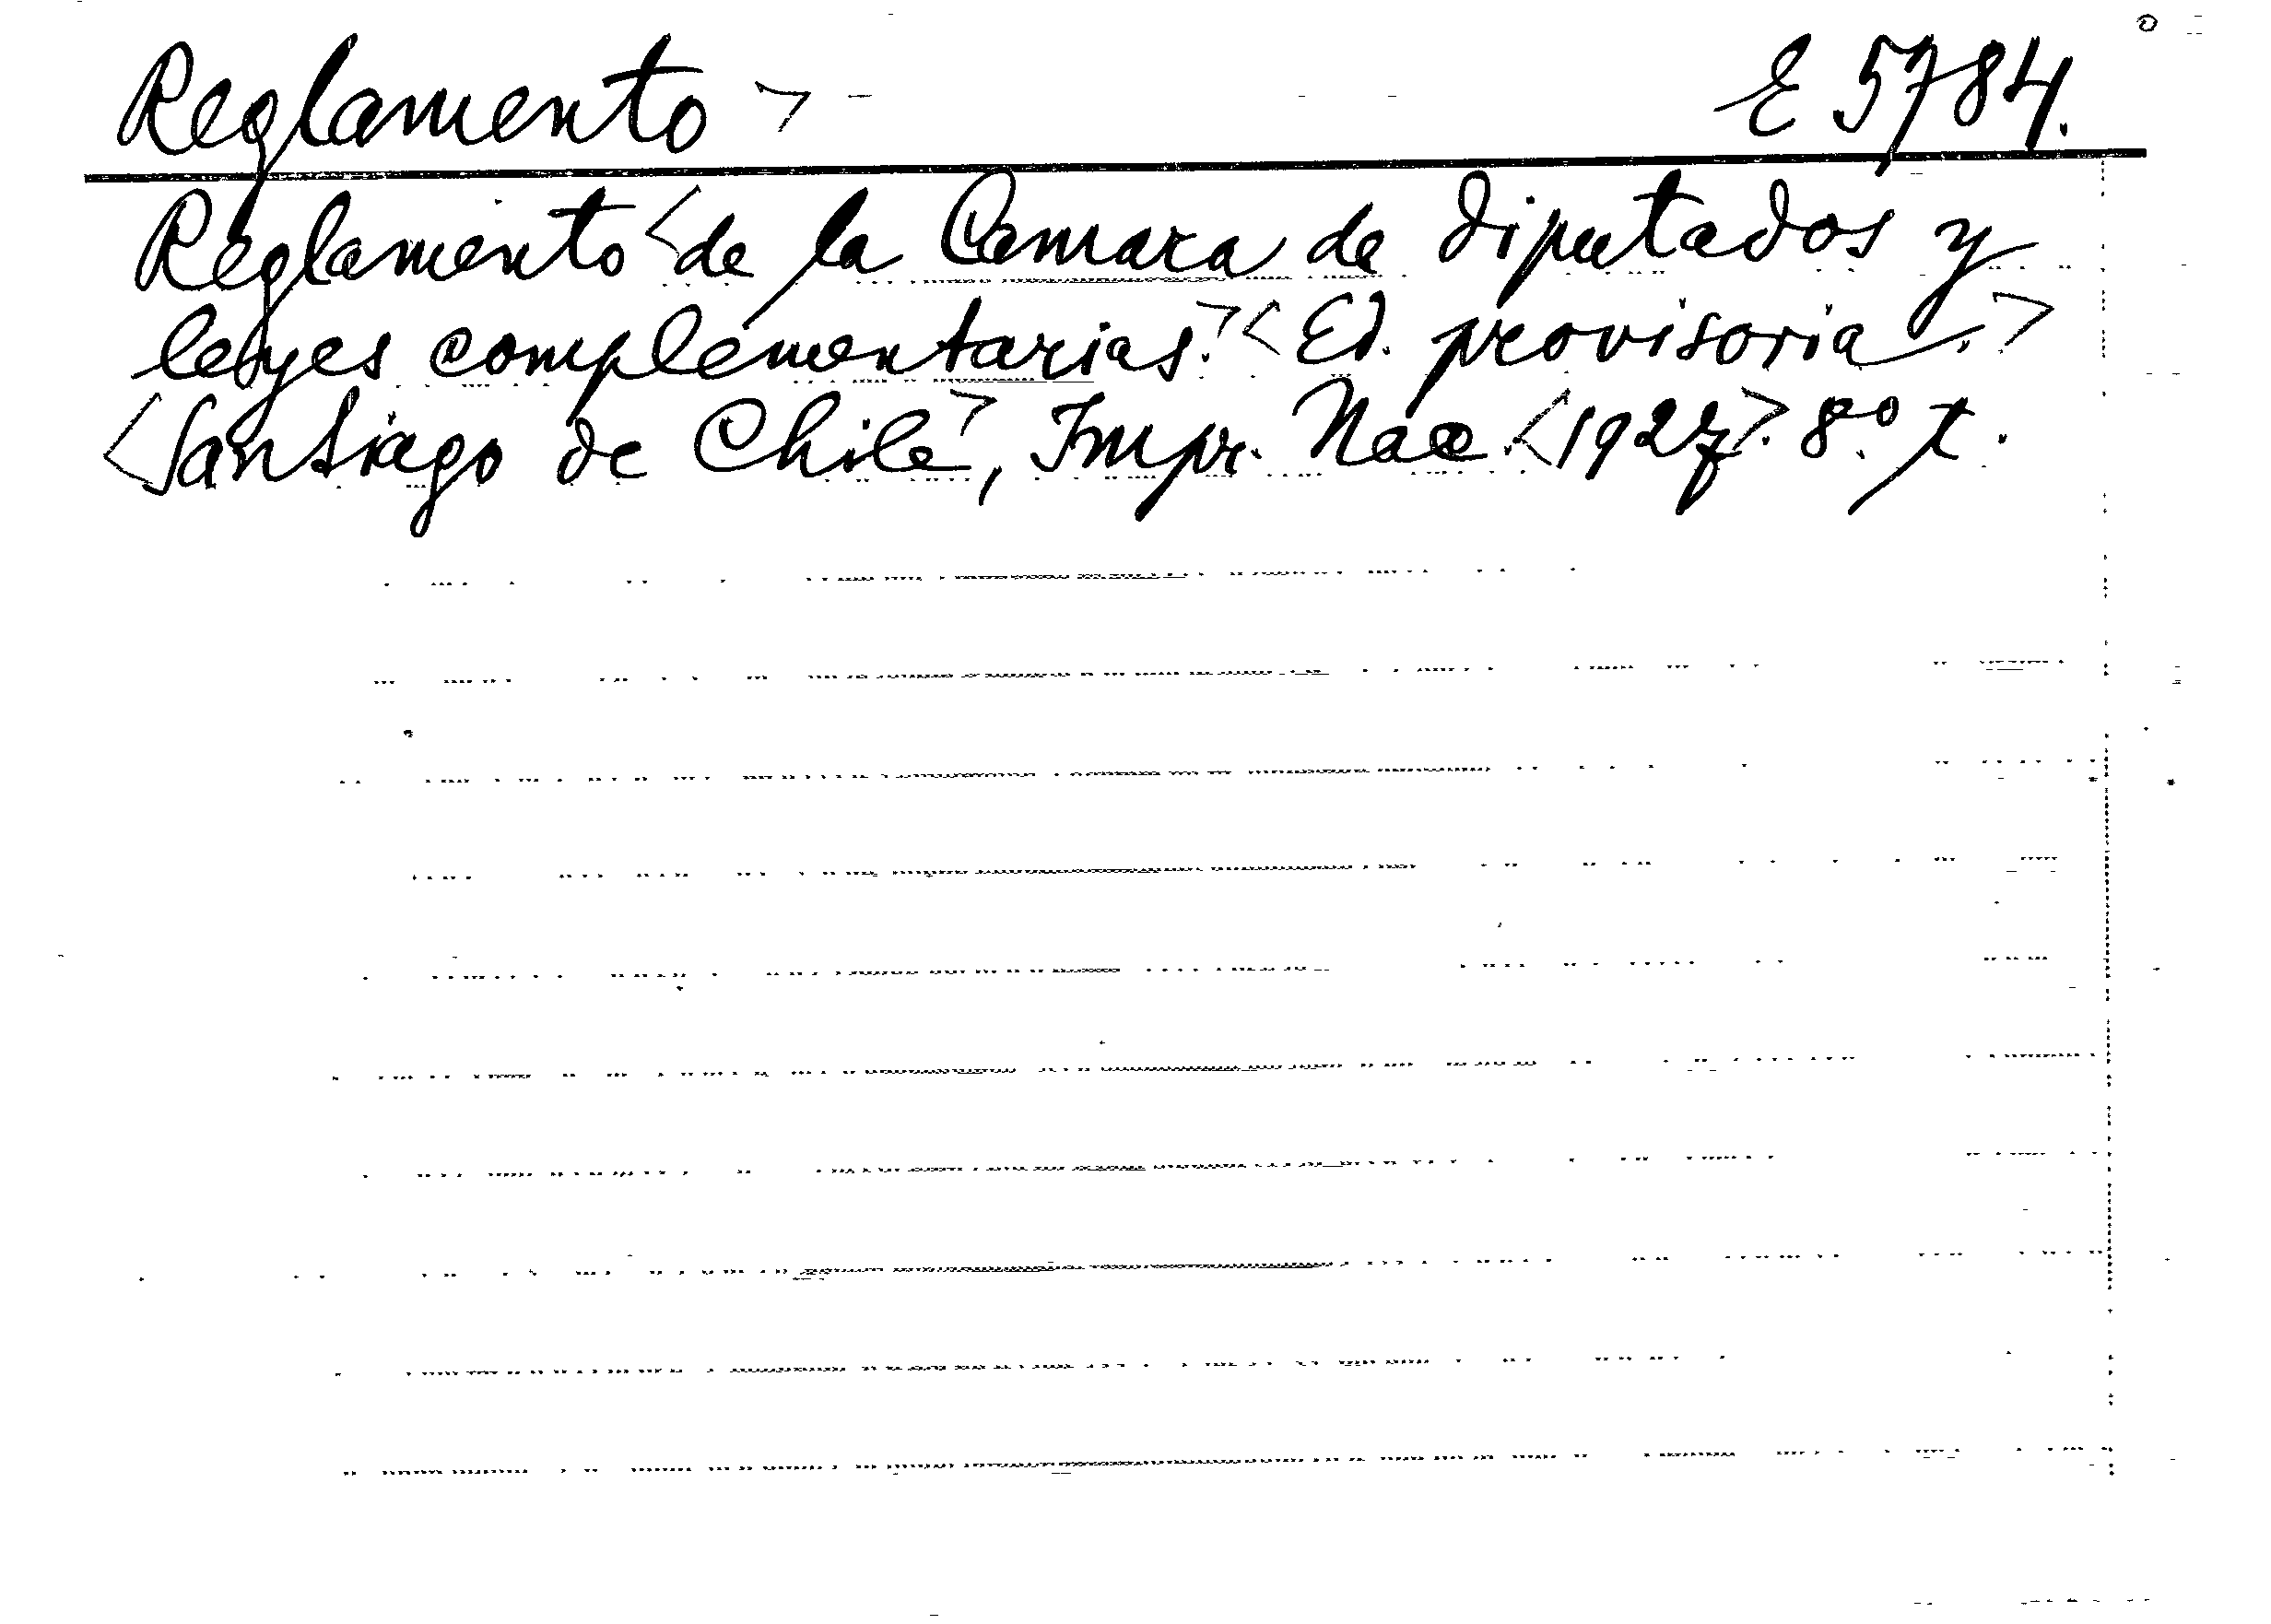 Reglamento > E 5784.
Reglamento <de la Camara de Diputados y
leyes complementarias.> <Ed. provisoria.>
<Santiago de Chile>, Impr. Nac. <1927>. 8.º t.